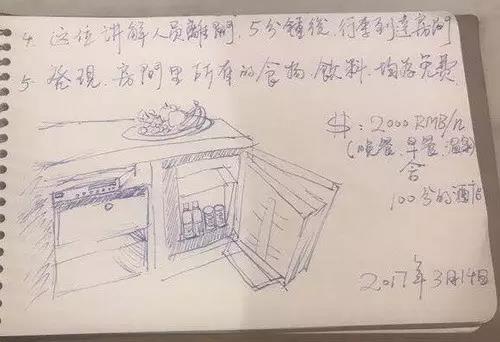 4. 这位讲解人员離開, 5分鍾後, 行李到達房間
5. 發現, 房間里所有的食物, 飲料, 均為免費
$: 2000 RMB/n
(晚餐、早餐、溫泉)
含
100分的酒店
2017年3月14日